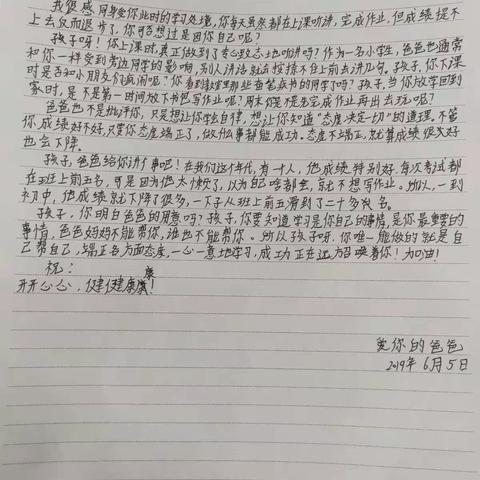 我很感同身受你此时的学习处境,你每天虽然都在上课听讲,完成作业,但成绩提不
上去反而退步了,你可否想过是因你自己呢?
孩子呀!你上课时真正做到了专心致志地听讲吗?作为一名小学生,爸爸也通常
和你一样受到旁边同学的影响,别人讲话就会按捺不住上前去讲几句。孩子,你下课
时是否和小朋友们疯闹呢?你看到教室里那些奋笔疾书的同学了吗?孩子,当你放学回到
家时,是不是第一时间放下书包写作业呢?周末你是不是先完成作业再出去玩呢?
爸爸也不是批评你,只是想让你学会自律,想让你知道“态度决定一切”的道理,不管
你成绩好不好,只要你态度端正了,做什么事都能成功。态度不端正,就算成绩很好
也会下降。
孩子,爸爸给你讲个事吧!在我们这个年代,有一个人,他成绩特别好,每次考试都
在班上前五名,可是因为他太懒了,以为自己啥都会,就不想写作业。所以,一到
初中,他成绩就下降了很多,一下子从班上前五滑到了二十多名。
孩子,你明白爸爸的用意吗?孩子,你要知道学习是你自己的事情,是你最重要的
事情,爸爸妈妈不能帮你,谁也不能帮你。所以孩子呀,你唯一能做的就是自
己帮自己,端正各方面态度,一心一意地学习,成功正在远方召唤着你!加油!
祝:
开开心心,健健康康!
爱你的爸爸
2019年6月5日